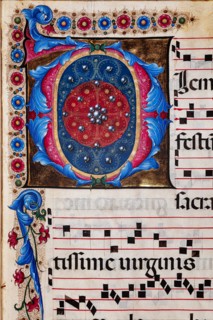 festi
sacra
tissime uirginis